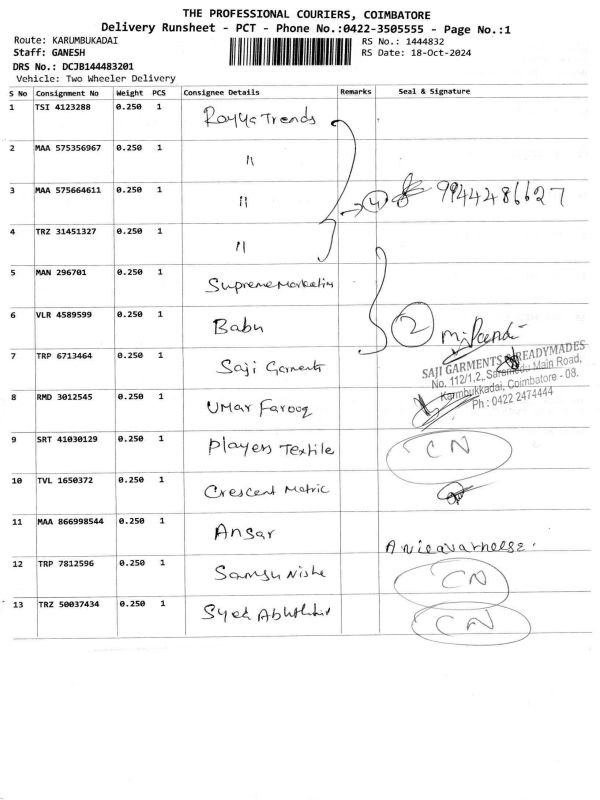 THE PROFESSIONAL COURIERS, COIMBATORE
Delivery Runsheet - PCT - Phone No.:0422-3505555 - Page No.:1
Route: KARUMBUKADAI RS No.: 1444832
Staff: GANESH RS Date: 18-Oct-2024
DRS No.: DCJB144483201
Vehicle: Two Wheeler Delivery
S No Consignment No Weight PCS Consignee Details Remarks Seal & Signature
1 TSI 4123288 0.250 1 Rayya Trends
2 MAA 575356967 0.250 1 "
3 MAA 575664611 0.250 1 " 4 9944286627
4 TRZ 31451327 0.250 1 "
5 MAN 296701 0.250 1 Supreme Marketin
6 VLR 4589599 0.250 1 Babu 2
7 TRP 6713464 0.250 1 Saji Garments
SAJI GARMENTS & READYMADES
No. 112/1,2, Main Road,
Karmbukkadai, Coimbatore - 08.
Ph : 0422 2474444
8 RMD 3012545 0.250 1 Umar Farooq
9 SRT 41030129 0.250 1 Players Textile CN
10 TVL 1650372 0.250 1 Crescent Matric
11 MAA 866998544 0.250 1 Ansar
12 TRP 7812596 0.250 1 Samsu Nisha CN
13 TRZ 50037434 0.250 1 Syed CN